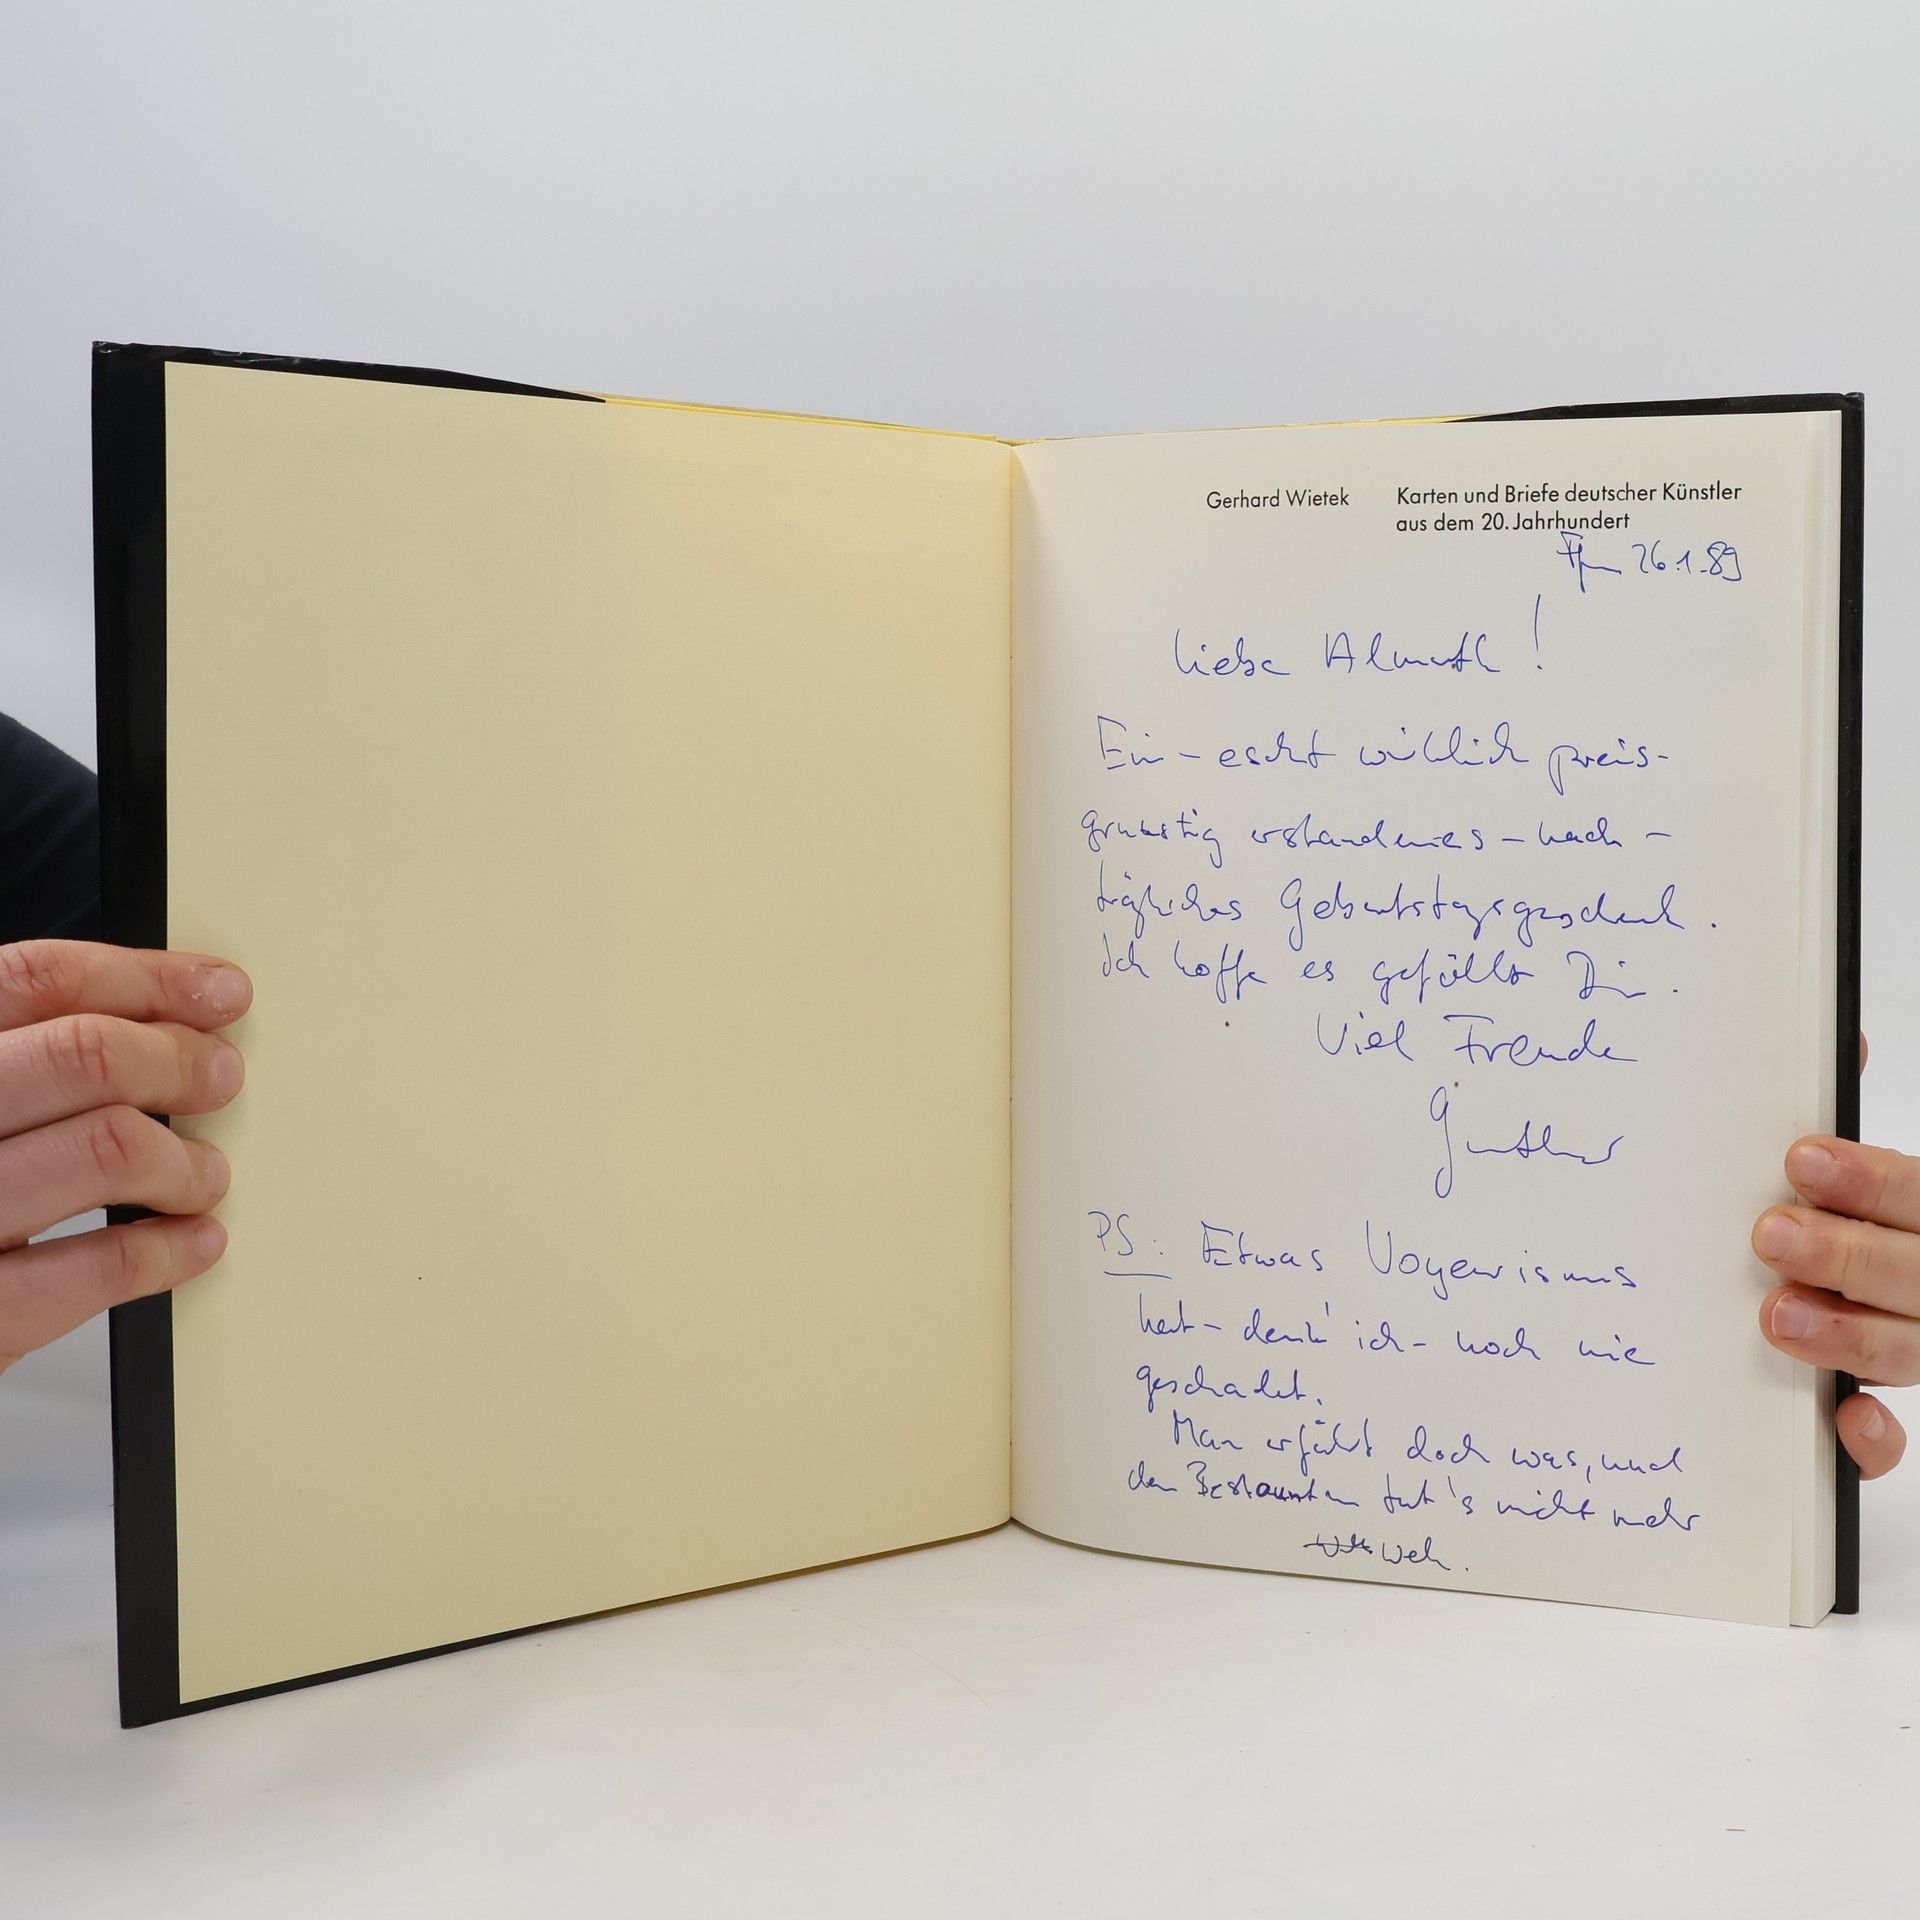 Gerhard Wietek
Karten und Briefe deutscher Künstler
aus dem 20. Jahrhundert
26.1.89
Liebe Almuth!
Ein – echt wirklich preis-
grünstig erstandenes – nach –
trägliches Geburtstagsgeschenk.
Ich hoffe es gefällt Dir.
Viel Freude
Günther
PS: Etwas Voyeurismus
hat – denk' ich – noch nie
geschadet.
Man erfährt doch was, und
den tut's nicht mehr
Weh.